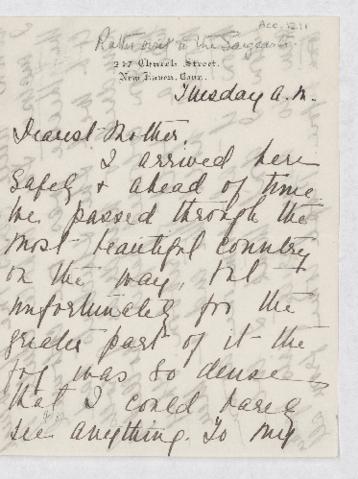 Acc. 1211
Rates visit to the Sargeants.
247 Church Street.
New Haven, Conn.
Tuesday A.M.
Dearest Mother.
I arrived here
safely & ahead of time
We passed through the
most beautiful country
on the way, but
unfortunately for the
greater part of it the
fog was so dense
that I could barely
see anything. To my